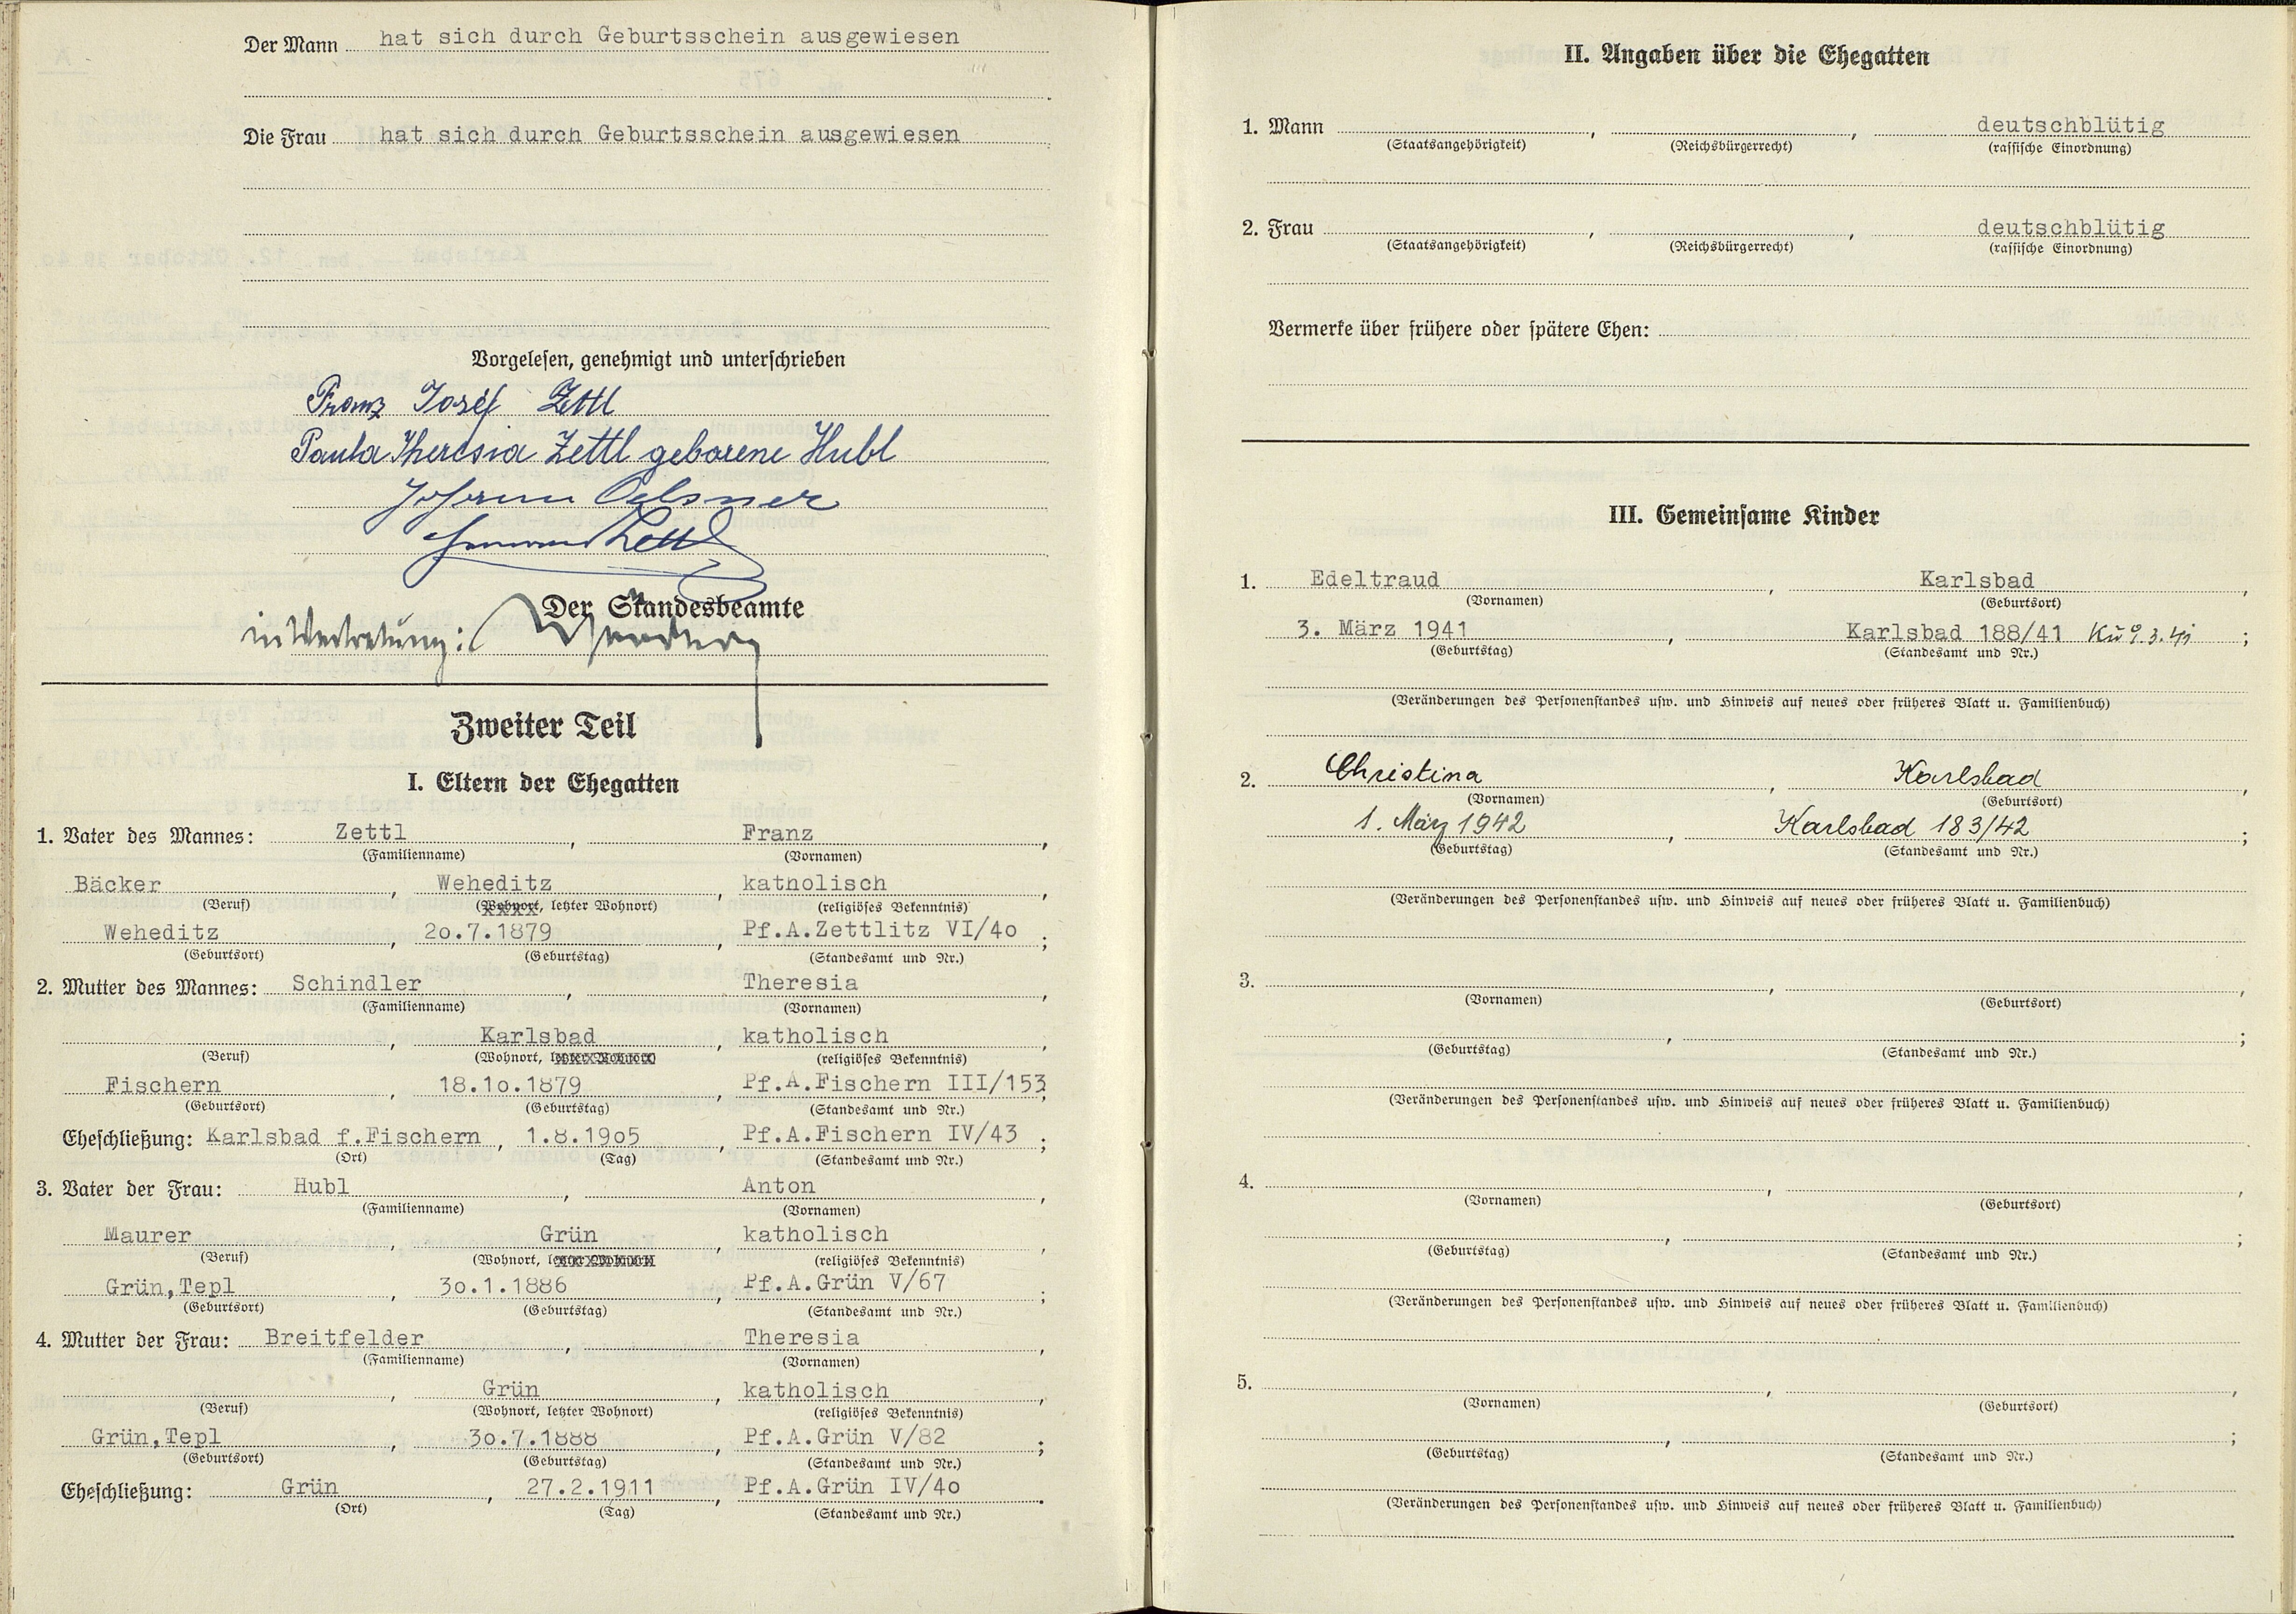 Der Mann hat sich durch Geburtsschein ausgewiesen
Die Frau hat sich durch Geburtsschein ausgewiesen
Vorgelesen, genehmigt und unterschrieben
Franz Josef Zettl
Paula Theresia Zettl geborene Hubl
Johann Oelsner
Zettl
Der Standesbeamte
in Vertretung:
Zweiter Teil
I. Eltern der Ehegatten
1. Vater des Mannes: Zettl, Franz,
(Familienname) (Vornamen)
Bäcker, Weheditz, katholisch,
(Beruf) (Wohnort, letzter Wohnort) (religiöses Bekenntnis)
Weheditz, 2o.7.1879, Pf.A.Zettlitz VI/4o;
(Geburtsort) (Geburtstag) (Standesamt und Nr.)
2. Mutter des Mannes: Schindler, Theresia,
(Familienname) (Vornamen)
, Karlsbad, katholisch,
(Beruf) (Wohnort, letzter Wohnort) (religiöses Bekenntnis)
Fischern, 18.1o.1879, Pf.A.Fischern III/153;
(Geburtsort) (Geburtstag) (Standesamt und Nr.)
Eheschließung: Karlsbad f.Fischern, 1.8.19o5, Pf.A.Fischern IV/43;
(Ort) (Tag) (Standesamt und Nr.)
3. Vater der Frau: Hubl, Anton,
(Familienname) (Vornamen)
Maurer, Grün, katholisch,
(Beruf) (Wohnort, letzter Wohnort) (religiöses Bekenntnis)
Grün,Tepl, 3o.1.1886, Pf.A.Grün V/67;
(Geburtsort) (Geburtstag) (Standesamt und Nr.)
4. Mutter der Frau: Breitfelder, Theresia,
(Familienname) (Vornamen)
, Grün, katholisch,
(Beruf) (Wohnort, letzter Wohnort) (religiöses Bekenntnis)
Grün,Tepl, 3o.7.1888, Pf.A.Grün V/82;
(Geburtsort) (Geburtstag) (Standesamt und Nr.)
Eheschließung: Grün, 27.2.1911, Pf.A.Grün IV/4o.
(Ort) (Tag) (Standesamt und Nr.)
II. Angaben über die Ehegatten
1. Mann , , deutschblütig
(Staatsangehörigkeit) (Reichsbürgerrecht) (rassische Einordnung)
2. Frau , , deutschblütig
(Staatsangehörigkeit) (Reichsbürgerrecht) (rassische Einordnung)
Vermerke über frühere oder spätere Ehen:
III. Gemeinsame Kinder
1. Edeltraud, Karlsbad,
(Vornamen) (Geburtsort)
3. März 1941, Karlsbad 188/41 Kü 9.3.41;
(Geburtstag) (Standesamt und Nr.)
(Veränderungen des Personenstandes usw. und Hinweis auf neues oder früheres Blatt u. Familienbuch)
2. Christina, Karlsbad,
(Vornamen) (Geburtsort)
1. März 1942, Karlsbad 183/42;
(Geburtstag) (Standesamt und Nr.)
(Veränderungen des Personenstandes usw. und Hinweis auf neues oder früheres Blatt u. Familienbuch)
3. , ,
(Vornamen) (Geburtsort)
, ;
(Geburtstag) (Standesamt und Nr.)
(Veränderungen des Personenstandes usw. und Hinweis auf neues oder früheres Blatt u. Familienbuch)
4. , ,
(Vornamen) (Geburtsort)
, ;
(Geburtstag) (Standesamt und Nr.)
(Veränderungen des Personenstandes usw. und Hinweis auf neues oder früheres Blatt u. Familienbuch)
5. , ,
(Vornamen) (Geburtsort)
, ;
(Geburtstag) (Standesamt und Nr.)
(Veränderungen des Personenstandes usw. und Hinweis auf neues oder früheres Blatt u. Familienbuch)